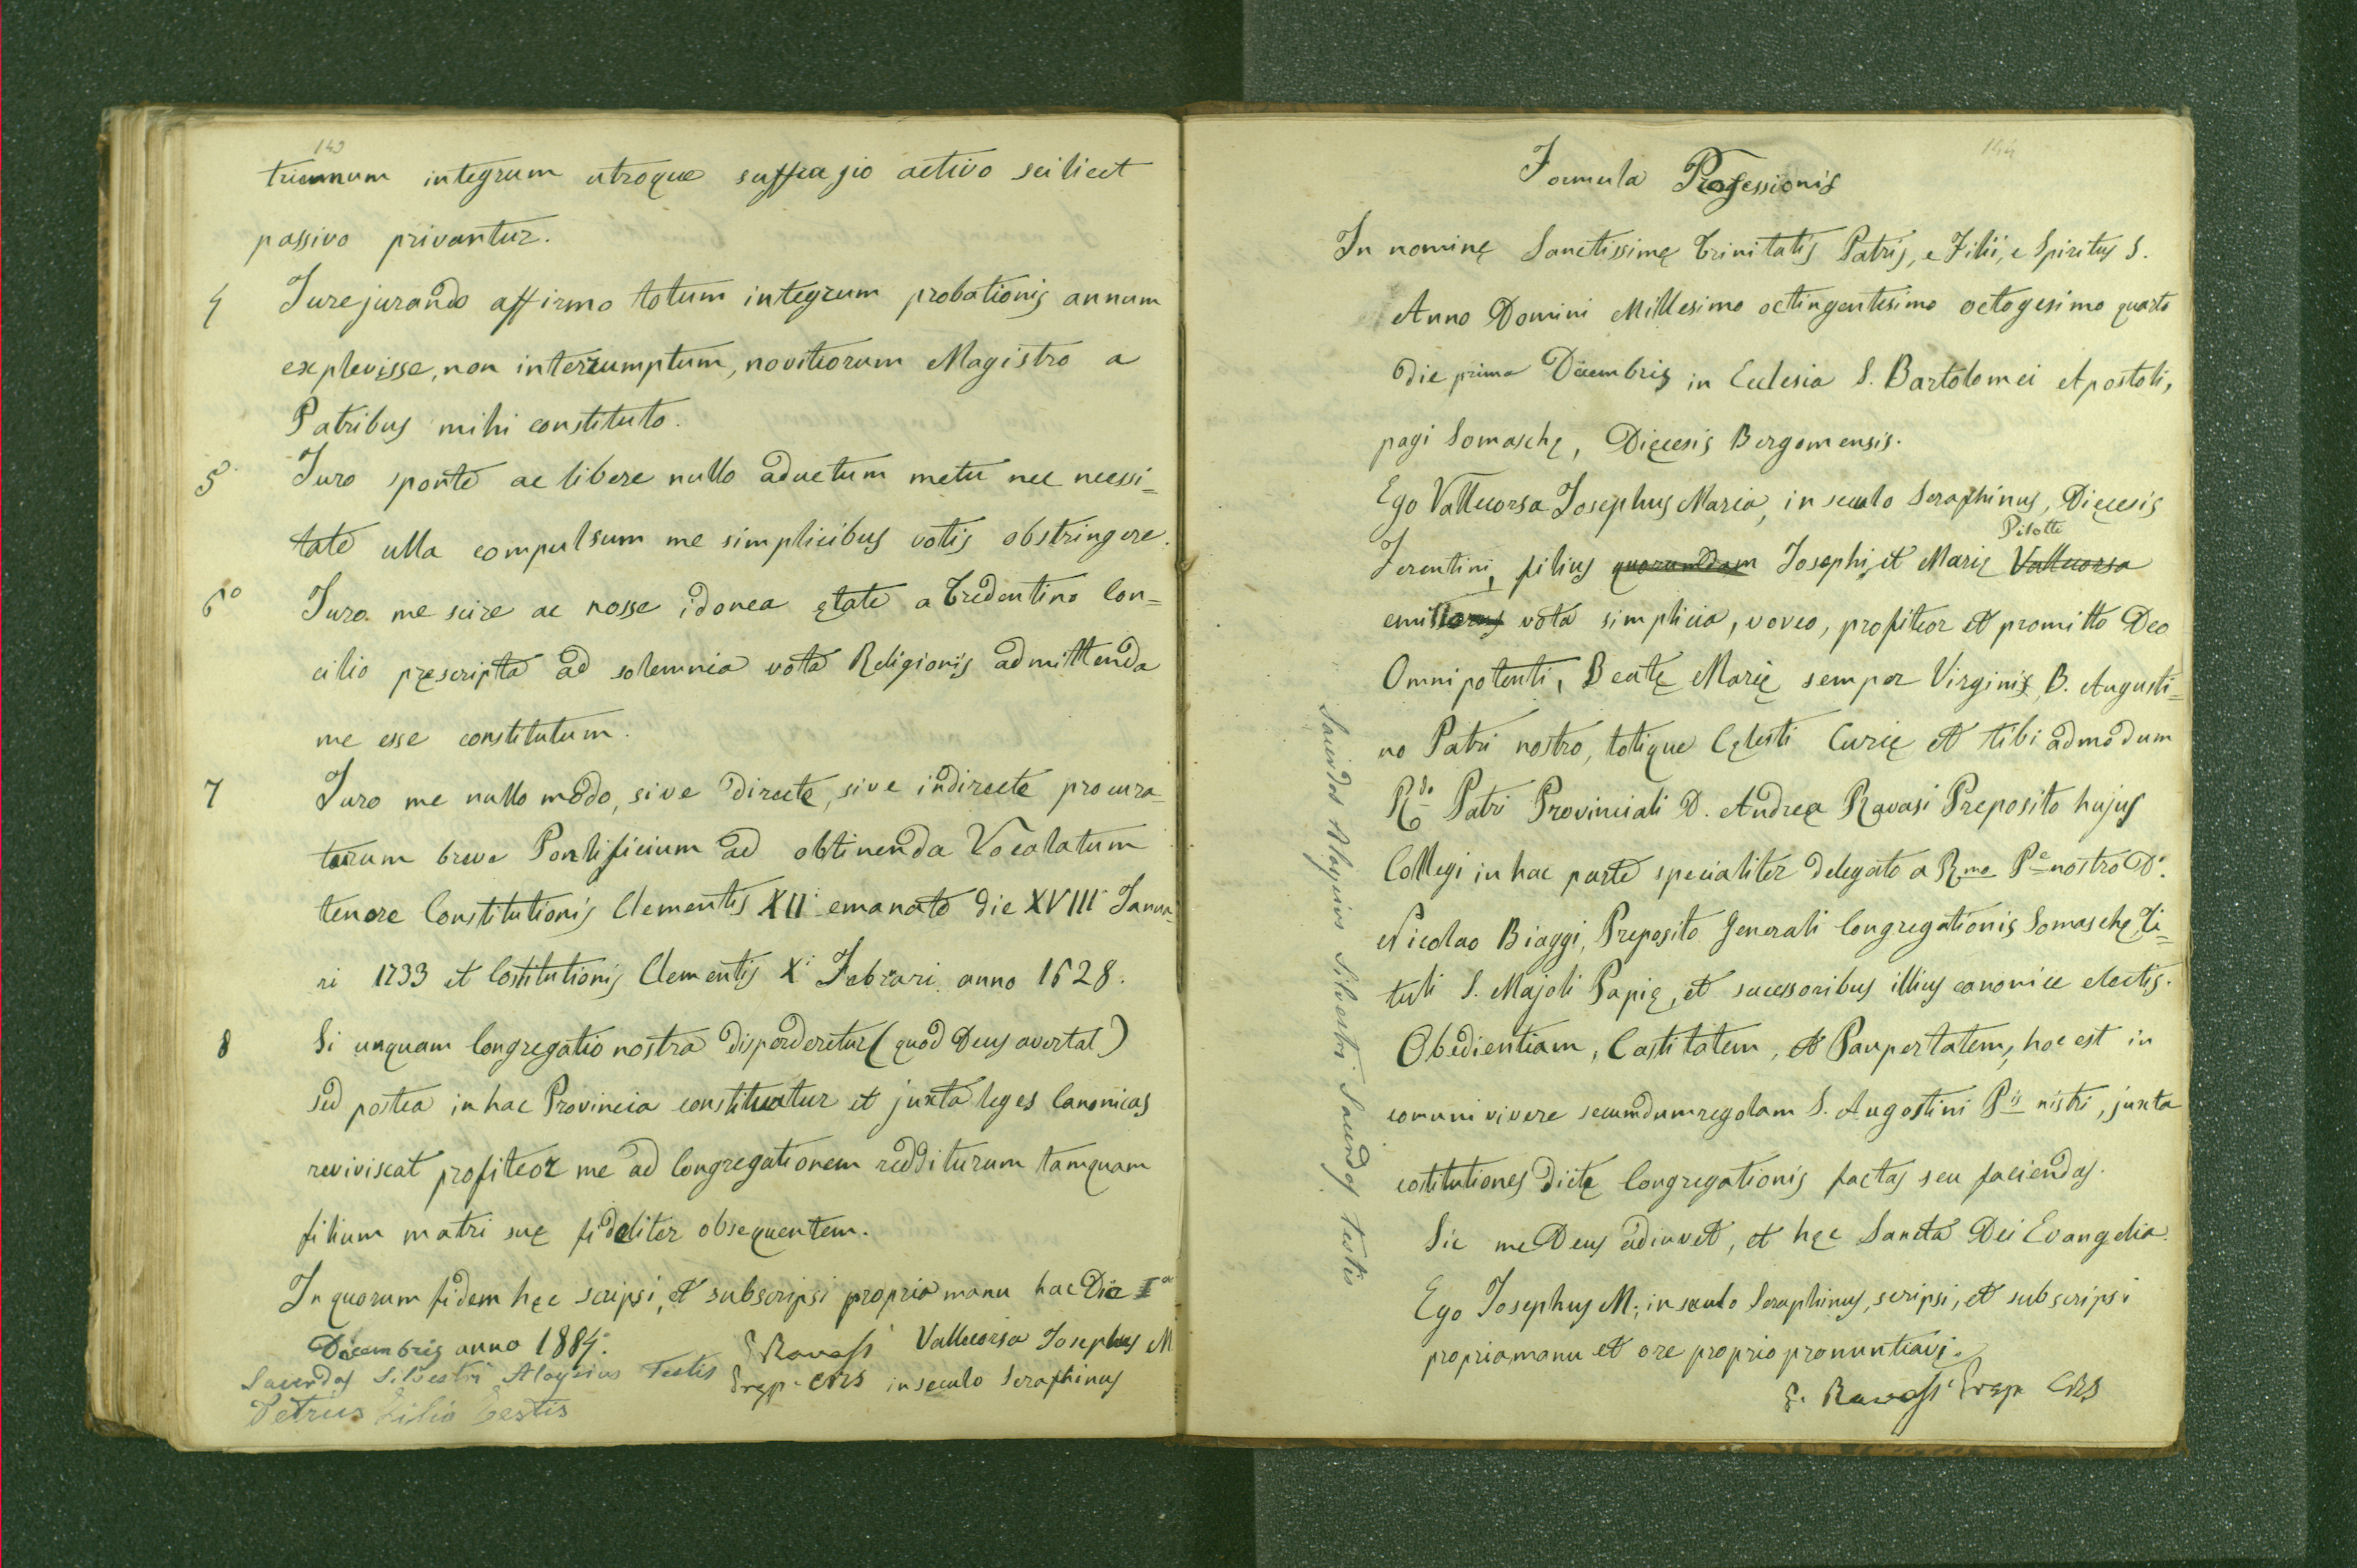 143
triennum integrum utroque suffragio activo scilicet
passivo privantur.
4 Jurejurando affirmo totum integrum probationis annum
explevisse, non interrumptum, novitiorum Magistro a
Patribus mihi constituto.
5 Juro sponte ac libere nullo aductum metu nec necessi=
tate ulla compulsum me simplicibus votis obstringere.
6º Juro me scire ac nosse idonea ętate a Tredentino Con=
cilio pręscripta ad solemnia vota Religionis admittenda
me esse constitutum.
7 Juro me nullo modo, sive directe, sive indirecte procura=
turum breve Pontificium ad obtinenda Vocalatum
tenore Constitutionis Clementis XII emanato die XVIII Janua=
ri 1733 et Costitutionis Clementis Xi Febrari anno 1628.
8 Si unquam Congregatio nostra disperderetur (quod Deus avertat)
sed postea in hac Provincia constituatur et juxta leges Canonicas
reviviscat profiteor me ad Congregationem redditurum tamquam
filium matri suę fideliter obsequentem.
In quorum fidem hęc scripsi, et subscripsi propria manu hac Die Ia
Dicembris anno 1884. Vallecorsa Josephus M
Ravasi
Sacerdos Silvestri Aloysius Testis Prep. CRS in seculo Seraphinus
Petrus Testis
144
Formula Professionis
In nominę Sanctissimę Trinitatis Patris, e Filii, e Spiritus S.
Anno Domini Millesimo octingentesimo octogesimo quarto
die prima Dicembris in Ecclesia S. Bartolomei Apostoli,
pagi Somaschę, Dięcesis Bergomensis.
Ego Vallecorsa Josephus Maria, in seculo Seraphinus, Dięcesis
Pilotti
Ferentini, filius quorumdam Josephi, et Marię Vallecorsa
emissorus vota simplicia, voveo, profiteor et promitto Deo
Omnipotenti, Beatę Marię semper Virginis, B. Augusti=
no Patri nostro, totique Cęlesti Curię et tibi admodum
Rdo Patri Provinciali D. Andrea Ravasi Preposito hujus
Collegi in hac parte specialiter delegato a Rmo Pe nostro D.
Nicolao Biaggi, Pręposito Generali Congregationis Somaschę, Ti=
tuli S. Majoli Papię, et sucessoribus illius canonice electis.
Obedientiam, Castitatem, et Paupertatem, hoc est in
comuni vivere secumdum regolam S. Augostini Pis nistri, juxta
costitutiones dictę Congregationis factas seu faciendas.
Sic me Deus adiuvet, et hęc Sancta Dei Evangelia.
Ego Josephus M. in seculo Seraphinus, scripsi, et subscripsi
propria manu et ore proprio pronuntiavi.
Ravasi Prep CRS
Sacerdos Aloysius Silvestri Sacerdos testis